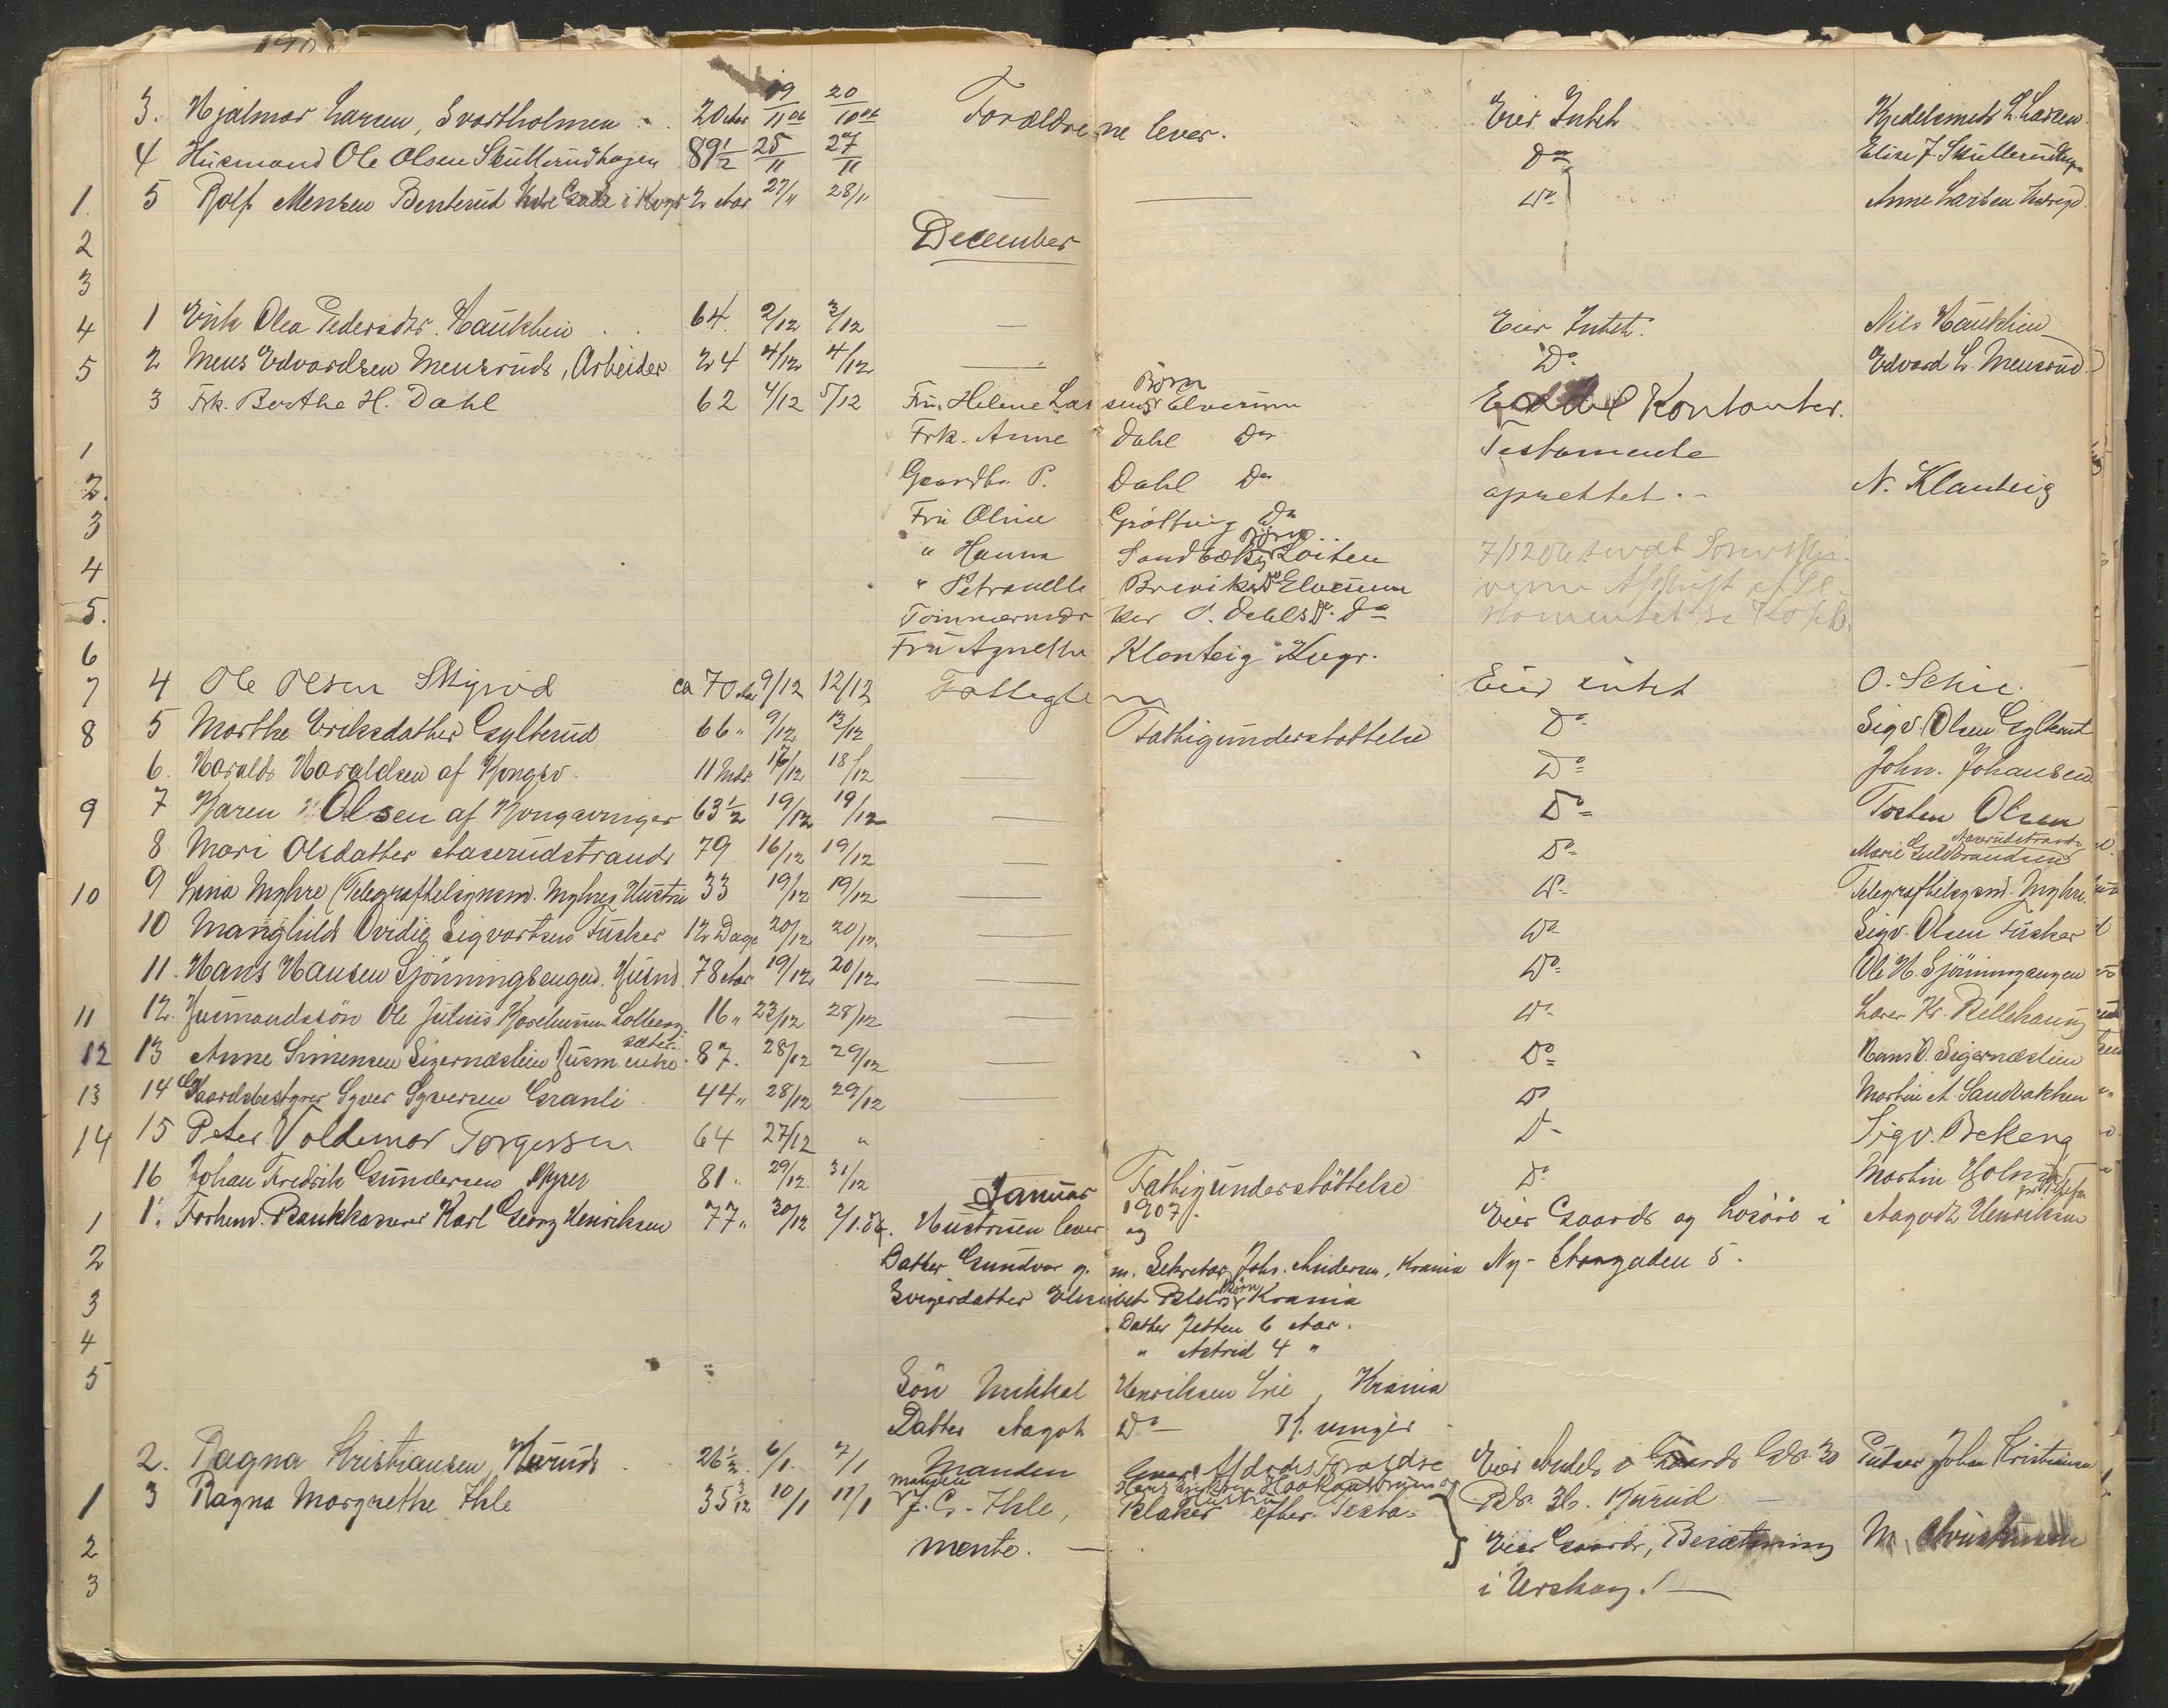 3. Hjalmar Larsen, Svartholmen 20 Aar 19/11 06 20/10 06 Forældrene lever. Eier Intet Kjedelsmed L. Larsen
4 Husmand Ole Olsen Skullerudhagen 89 1/2 25/11 27/11 Do Elise J. Skullerudhagen
1. 5 Rolf Mensen Benterud 2 Aar 27/11 28/11 — — Do Anne Larsen
2 December
3
4 1 Enke Olea Pedersdtr. Haukhein 64. 2/12 3/12 — Eier Intet. Nils Haukhein
5 2 Mens Edvardsen Mensrud, Arbeider 24 4/12 4/12 — Do Edvard L. Mensrud
3 Frk. Berthe H. Dahl 62 4/12 5/12 Fru. Helene Larsens Børn Elverum Kontanter.
1 Frk. Anne Dahl Do Testamente
2. Gaardbr. P. Dahl Do oprettet.- N. Klanteig
3 Fru Oline Grøtting Do
4 " Hanna Sandbæks Børn Löiten 7/12 06 sendt
" Petronelle Breviks Do Elverum
5. P. Dahls Do. Do
6 Fru Agnethe Klanteig Kvgr.
7 4 Ole Olsen Skyrud ca 70 Aar 9/12 12/12 Eier intet O. Schie.
8 5 Marthe Eriksdatter Gylterud 66 " 9/12 13/12 Fattigunderstøttelse Do Sigv. Olsen Gylterud
6. Harald Haraldsen af Kongsv. 11 Mdr. 17/12 18/12 — Do John. Johansen
9 7 Karen Olsen af Kongsvinger 63 1/2 19/12 19/12 — Do Tosten Olsen
8 Mari Olsdatter Aaserudstrand 79 16/12 19/12 — Do Marie Guldbrandsen Aaserudstrand
10 9 Lina Myhre (Telegrafbetjensm. Myhres Hustru 33 19/12 19/12 — Do Myhre.
10 Manghild Ovidie Sigvartsen Tusker 12 Dage 20/12 20/12 — Do Sigv. Olsen Tusker
11. Hans Hansen Sjönningsengen. Husmd. 78 Aar 19/12 20/12 — Do Ole H. Sjönningsengen
11 12. Husmandssön Ole Julius 16 " 23/12 28/12 — Do Lærer Kr. Bellehaug
12 13 Anne Simensen Sigernæslien Husm.enke 87. 28/12 29/12 — Do Hans O. Sigernæslien
13 14 Gaardsbestyrer Syver Syversen Granli 44 " 28/12 29/12 — Do Martin A. Sandbakken
14 15 Peter Voldemar Torgersen 64 27/12 " Do Sigv. Bekeng
16 Johan Fredrik Gundersen Myrer 81 " 29/12 31/12 Fattigunderstöttelse Do Martin Holm
Januar 1907.
1 1. Forhenv. Bankkasserer Karl Georg Henriksen 77 " 30/12 2/1. Hustruen lever og Eier Gaard og Lösöre i Aagodt Henriksen
2 Datter Gundvor g. m. Sekretær Johs. Andersen, Krania Ny- Storgaden 5.
3 Svigerdatter Elisabet Børn Krania
4 Datter Jetten 6 Aar.
" Astrid 4 "
5 Sön Mikkel Henriksen Krania
Datter Aagot Do —
2. Ragna Kristiansen, Kurud 26 1/2 6/1. 7/1 Manden lever. Afdødes Forældre Eier Andel i Gaard Gdr. 30 Johan Kristiansen
1 3 Ragna Margrethe Ihle 35 3/12 10/1 17/1 Manden J. C. Ihle, Blaker efter Testa= Br. 36. Kurud
2 mente. — Eier Gaard, Besætning M. Kristiansen
3 i Urskog. —